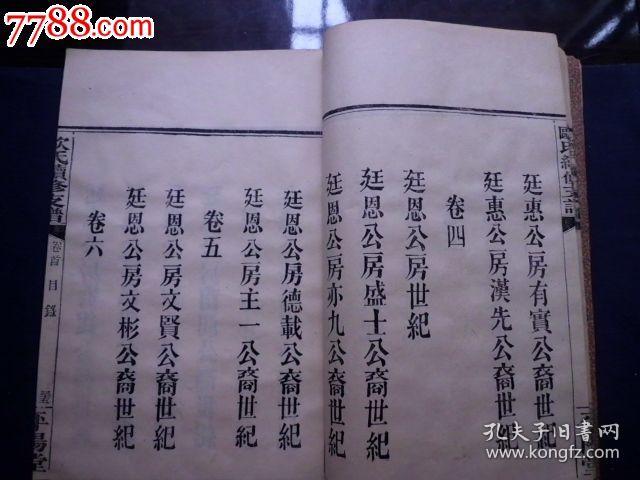 7788.com
廷惠公房有實公裔世紀
廷惠公房漢先公裔世紀
卷四
廷恩公房世紀
廷恩公房盛士公裔世紀
廷恩公房亦九公裔世紀
廷恩公房德載公裔世紀
卷五
廷恩公房主一公裔世紀
廷恩公房文賢公裔世紀
廷恩公房文彬公裔世紀
卷六
歐氏續修支譜
氏續修支譜
卷首
目錄
平陽堂
孔夫子旧书网
www.kongfz.com